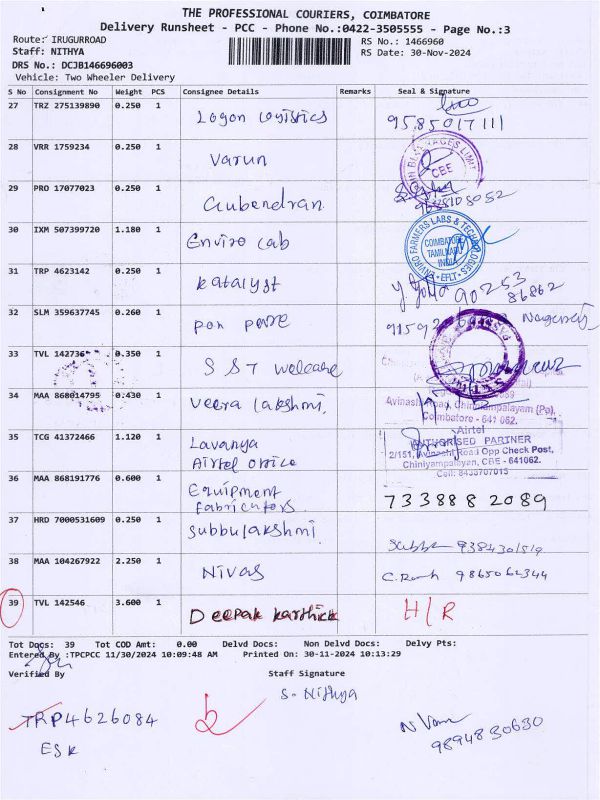 THE PROFESSIONAL COURIERS, COIMBATORE
Delivery Runsheet - PCC - Phone No.:0422-3505555 - Page No.:3
Route: IRUGURROAD
Staff: NITHYA
RS No.: 1466960
RS Date: 30-Nov-2024
DRS No.: DCJB146696003
Vehicle: Two Wheeler Delivery
S No Consignment No Weight PCS Consignee Details Remarks Seal & Signature
27 TRZ 275139890 0.250 1 Logon Logistics 9585017111
28 VRR 1759234 0.250 1 Varun CBE
29 PRO 17077023 0.250 1 Gubendran
30 IXM 507399720 1.180 1 Enviro Lab ENVIRO FARMERS LABS & TECHNOLOGIES COIMBATORE TAMILNADU INDIA EFLT
31 TRP 4623142 0.250 1 Katalyst 90253
86862
32 SLM 359637745 0.260 1 pon pure
33 TVL 142736 0.350 1 S S T welcare
34 MAA 868014795 0.430 1 Veera Lakshmi. Avinashi Road, Chinniyampalayam (Po),
Coimbatore - 641 062.
35 TCG 41372466 1.120 1 Lavanya
Airtel office
Airtel
AUTHORISED PARTNER
2/151, Avinashi Road Opp Check Post,
Chiniyampalayan, CBE - 641062.
Cell: 8433707015
36 MAA 868191776 0.600 1 Equipment
fabricators 7338882089
37 HRD 7000531609 0.250 1 Subbulakshmi
38 MAA 104267922 2.250 1 Nivas
39 TVL 142546 3.600 1 Deepak karthick H/R
Tot Docs: 39 Tot COD Amt: 0.00 Delvd Docs: Non Delvd Docs: Delvy Pts:
Entered By :TPCPCC 11/30/2024 10:09:48 AM Printed On: 30-11-2024 10:13:29
Verified By Staff Signature
S. Nithya
TRP4626084
ESK
9894830630